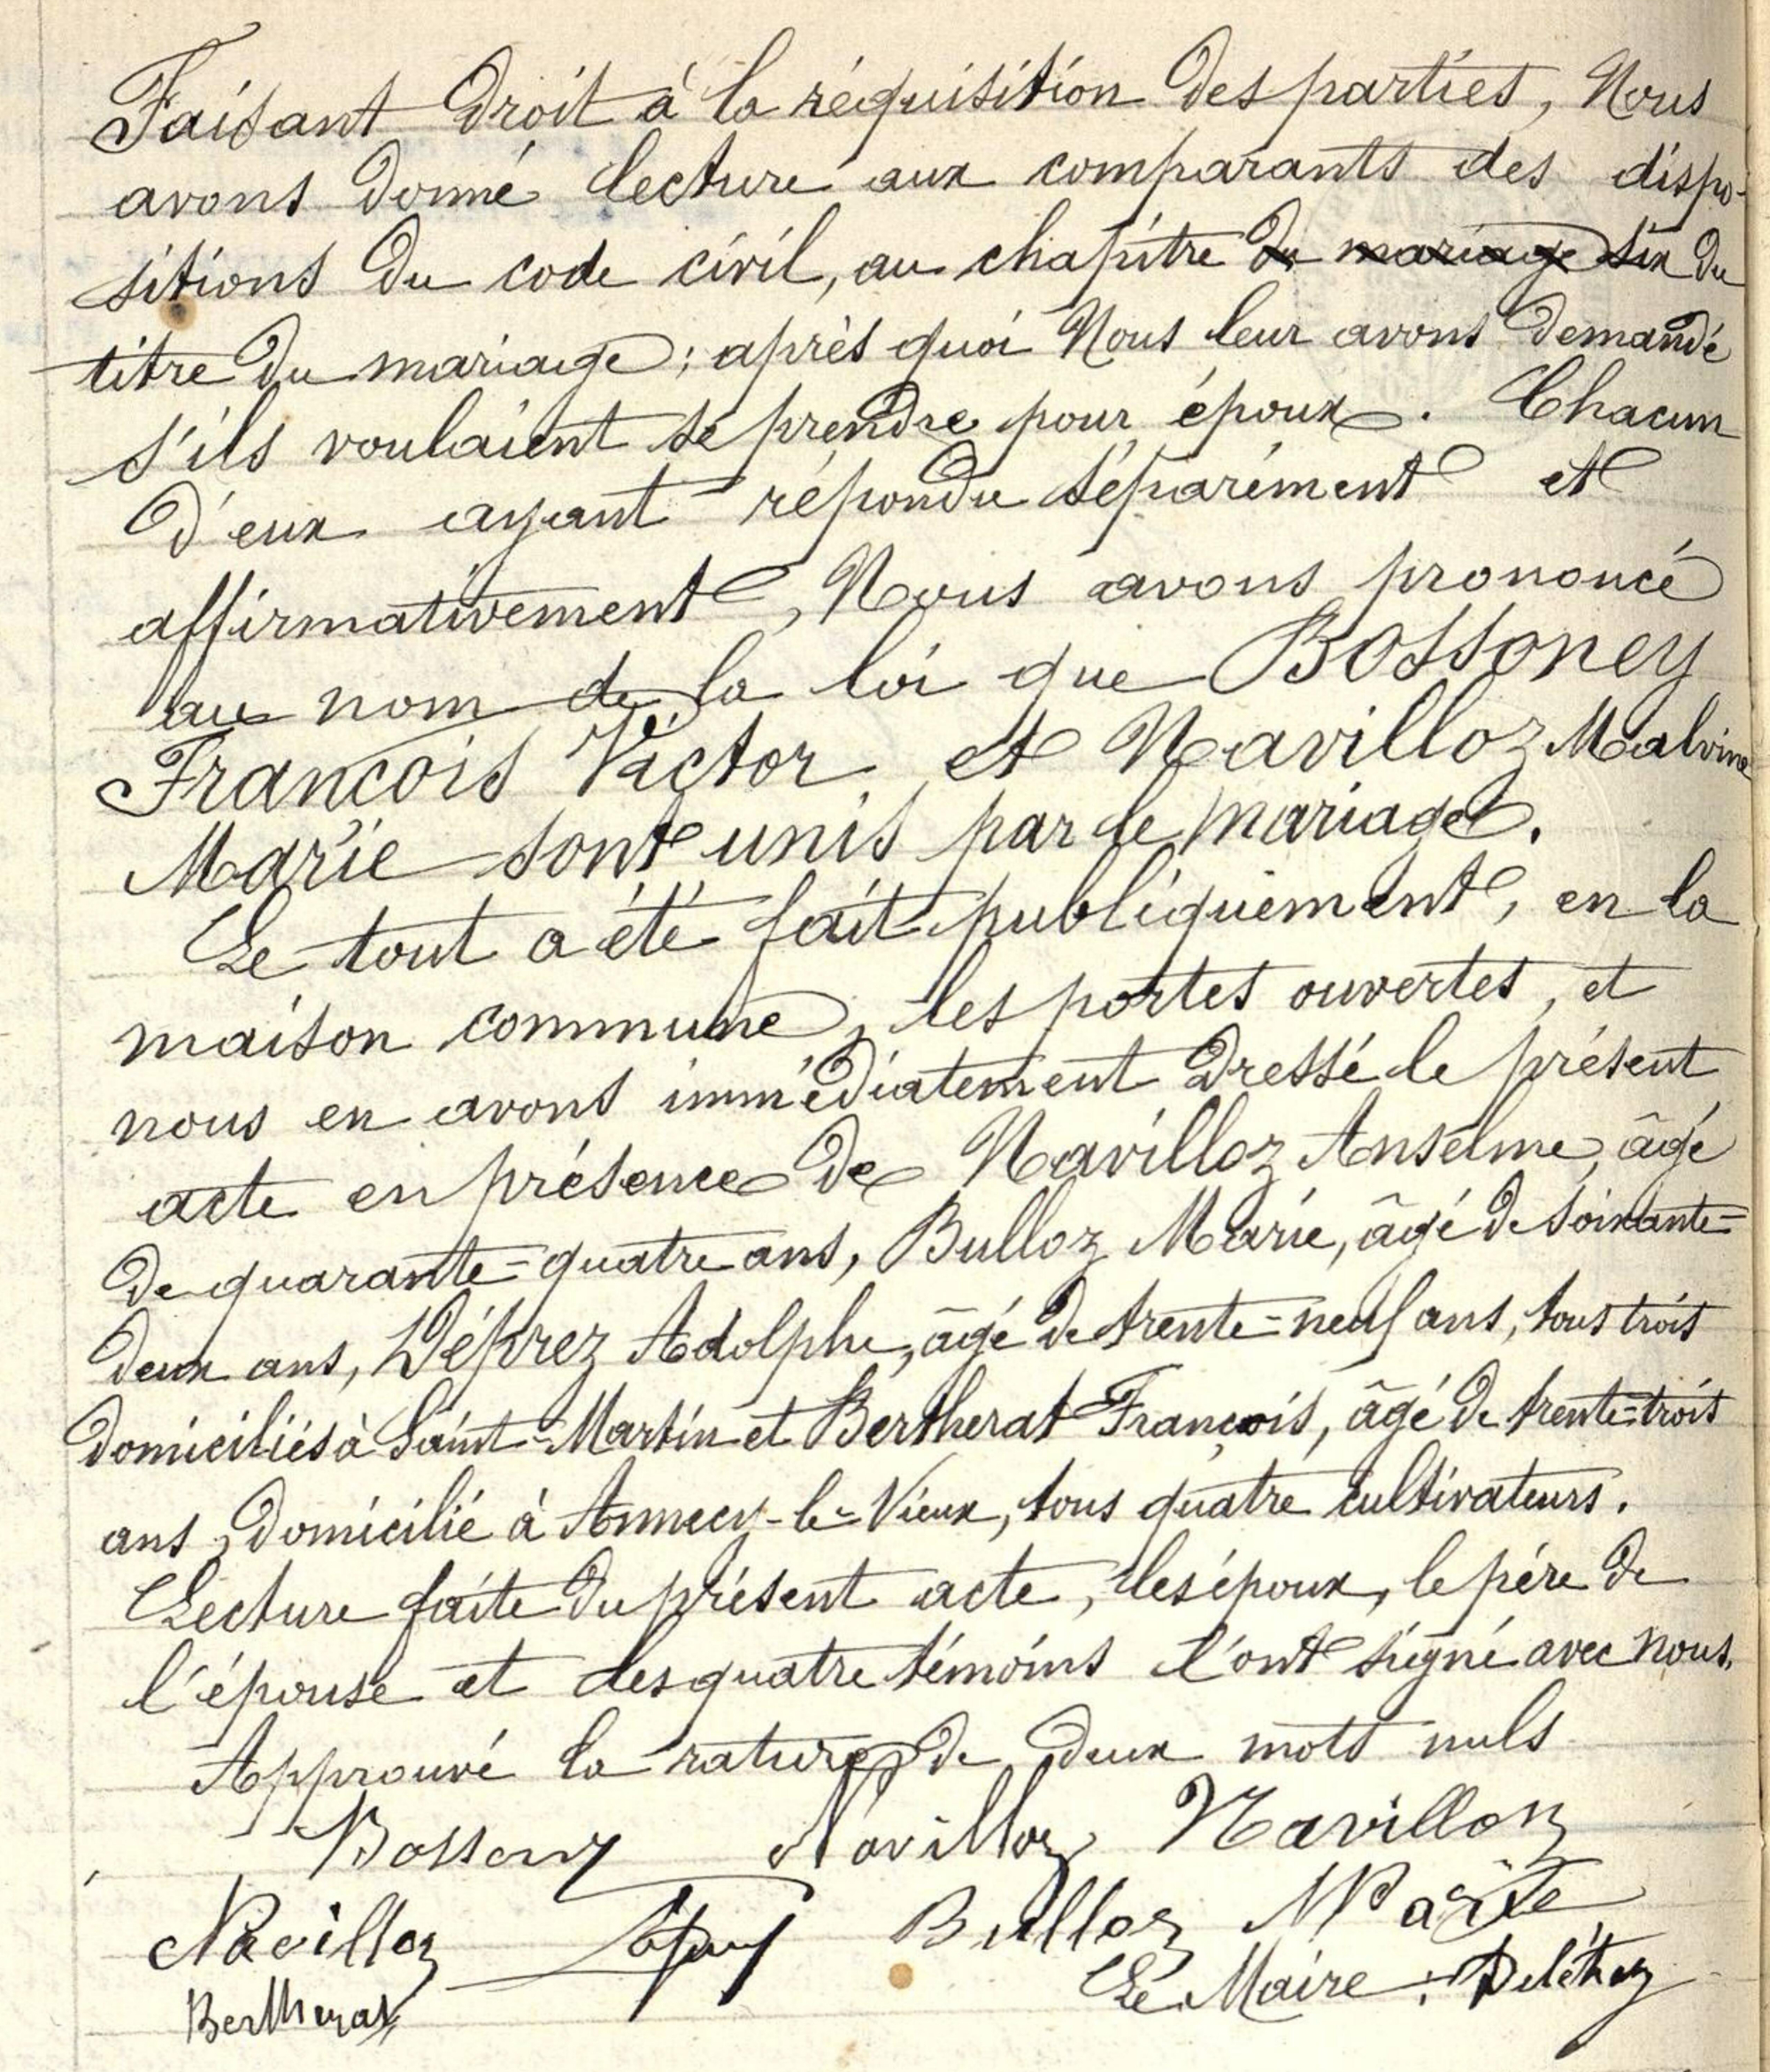 Faisant droit à la réquisition des parties, Nous
avons donné lecture aux comparants des dispo-
sitions du code civil, au chapitre du mariage six du
titre du mariage; après quoi Nous leur avons demandé
s'ils voulaient se prendre pour époux. Chacun
d'eux ayant répondu séparément et
affirmativement, Nous avons prononcé
au nom de la loi que Bossoney
François Victor et Navilloz Malvina
Marie sont unis par le mariage.
Le tout a été fait publiquement, en la
maison commune, les portes ouvertes, et
nous en avons immédiatement dressé le présent
acte en présence de Navilloz Anselme, âgé
de quarante-quatre ans, Bulloz Marie, âgé de soixante-
deux ans, Déprez Adolphe, âgé de trente-neuf ans, tous trois
domiciliés à Saint-Martin et Bertherat François, âgé de trente-trois
ans, domicilié à Annecy-le-Vieux, tous quatre cultivateurs.
Lecture faite du présent acte, les époux, le père de
l'épouse et les quatre témoins l'ont signé avec nous.
Approuvé la rature de deux mots nuls
Bossoney Navilloz Navilloz
Navilloz Bulloz Marie
Bertherat Le Maire: Deléthoz